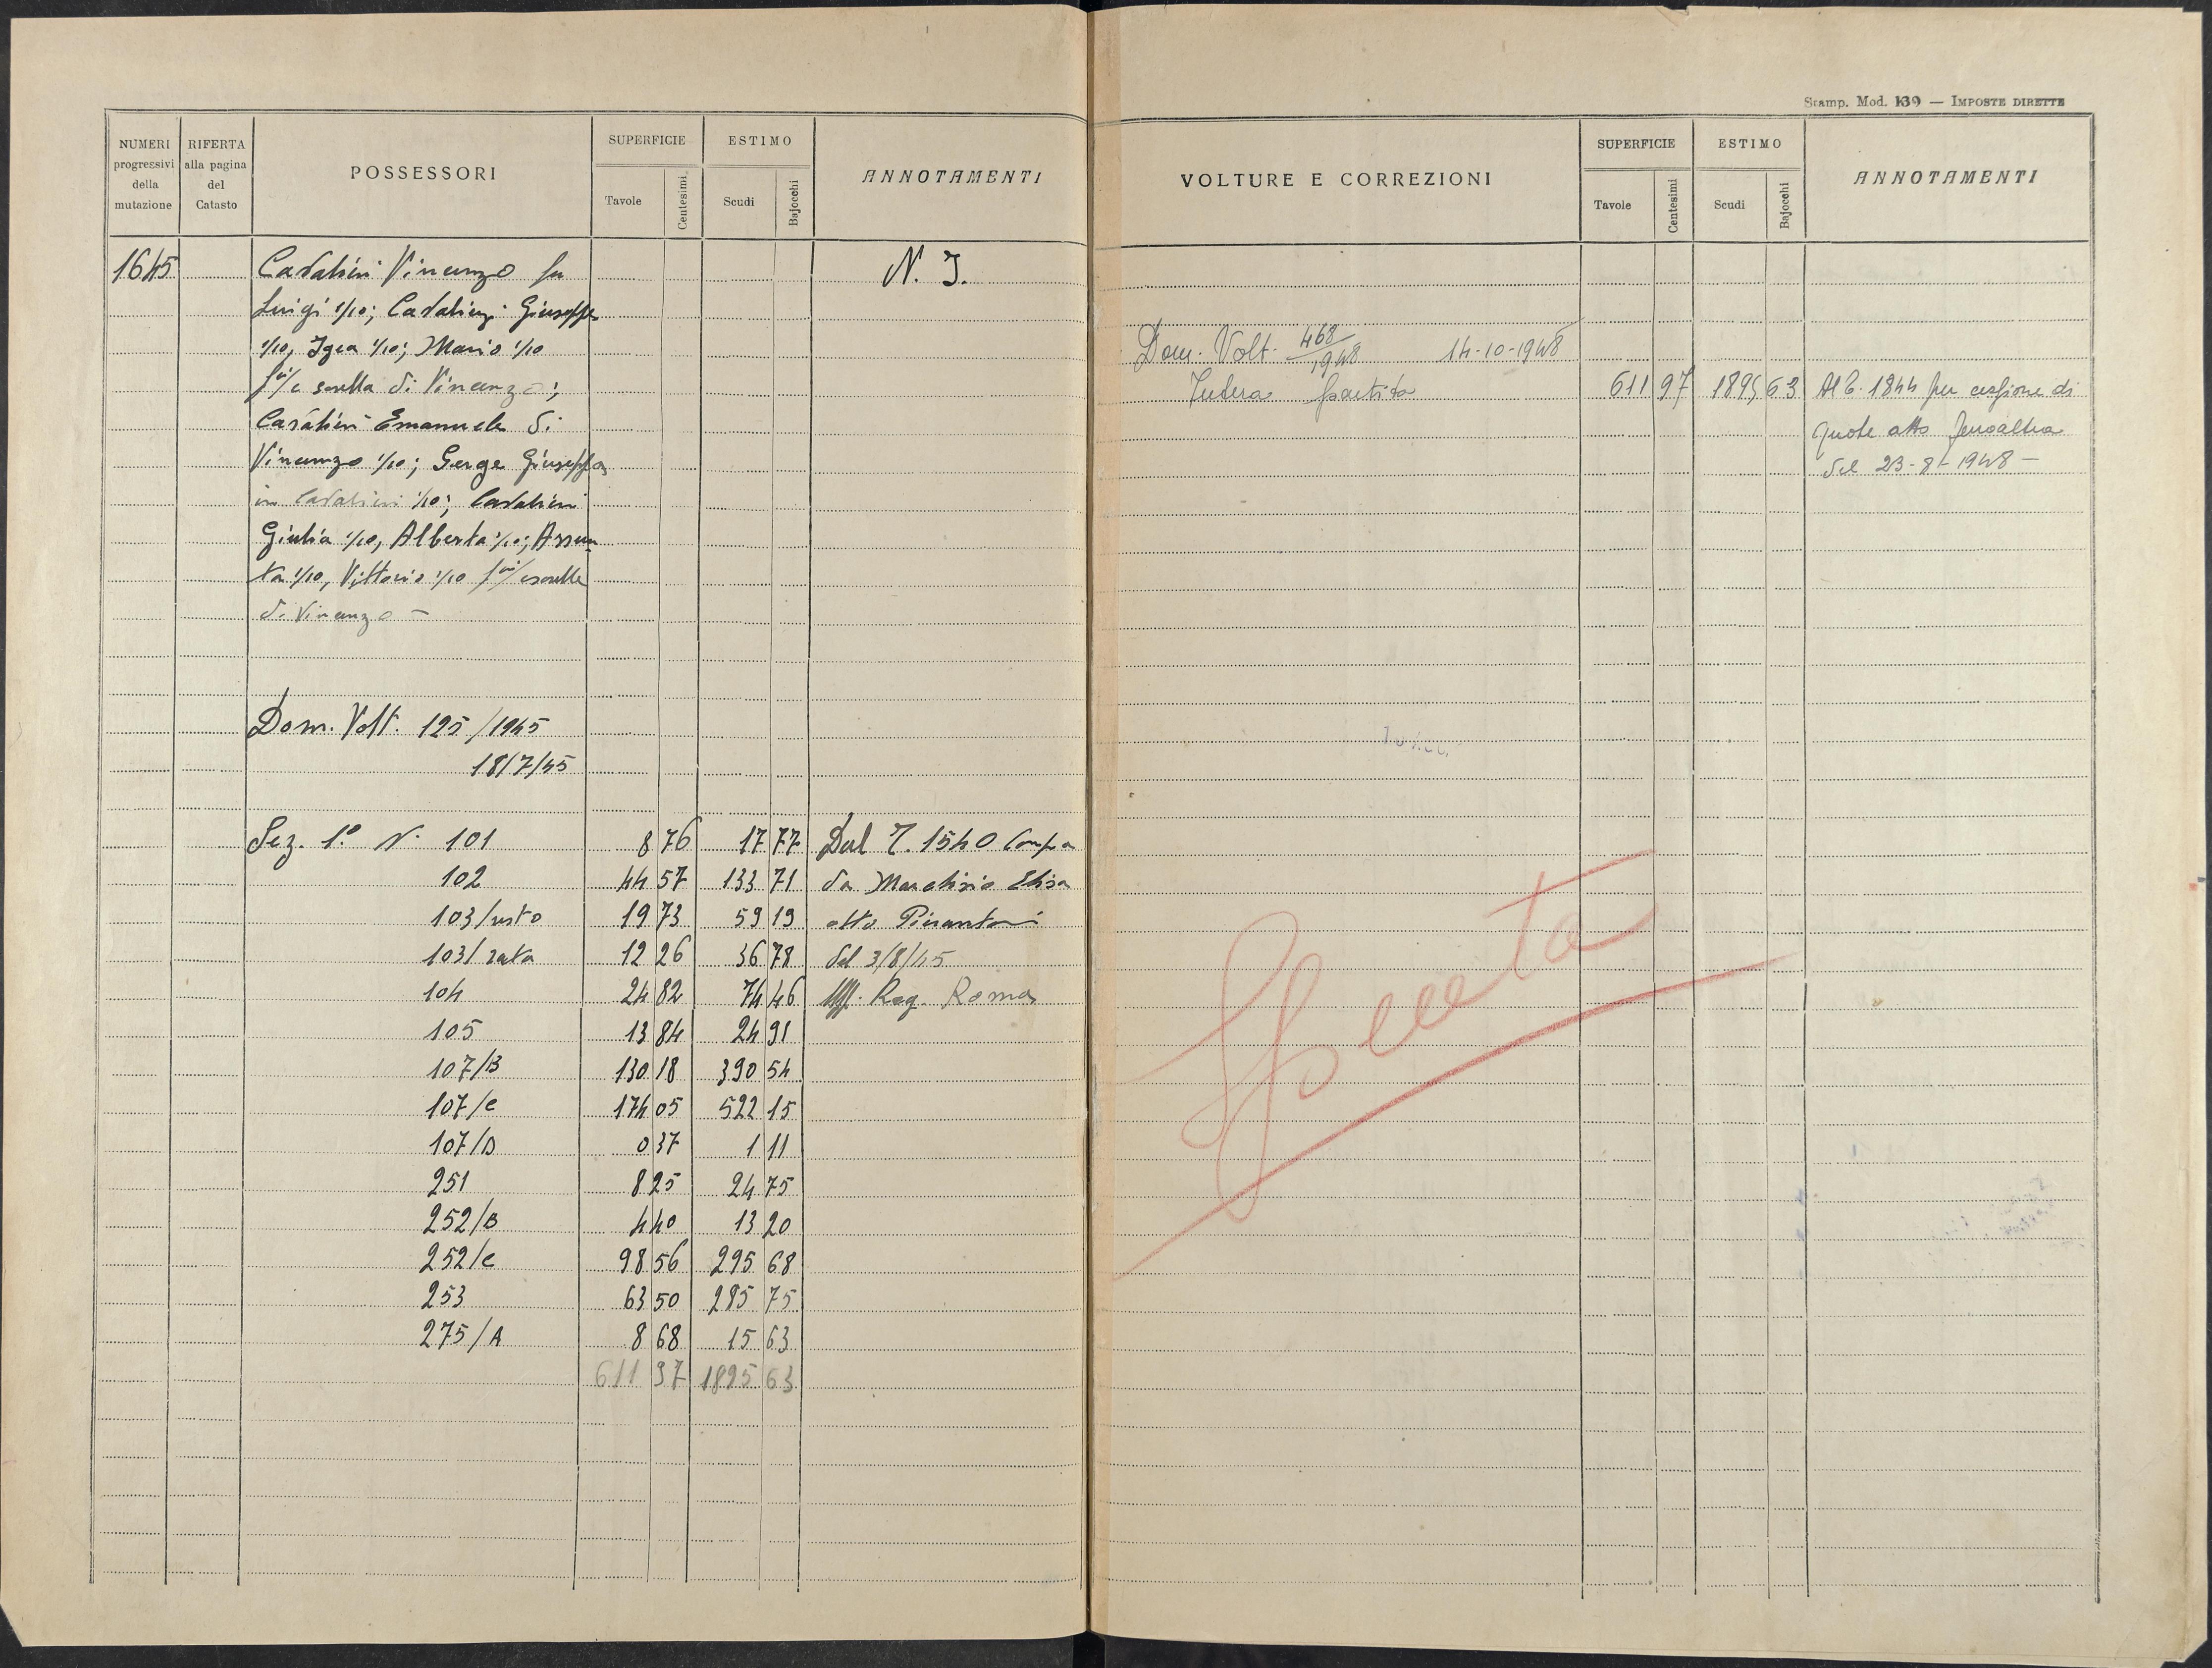 Stamp. Mod. 139 — IMPOSTE DIRETTE
NUMERI progressivi della mutazione
RIFERTA alla pagina del Catasto
POSSESSORI
SUPERFICIE
Tavole
Centesimi
ESTIMO
Scudi
Bajocchi
ANNOTAMENTI
1645
N. I.
Vincenzo fu
Luigi 1/10; Giuseppe
1/10, Igea 1/10; Mario 1/10
sorella di Vincenzo;
Emanuele di
Vincenzo 1/10; Giuseppa
in 1/10;
Giulia 1/10, Alberta 1/10; Assun
ta 1/10, Vittorio 1/10
di Vincenzo —
Dom. Volt. 125/1945
18/7/45
Sez. 1ª N. 101 8 76 17 77 Dal T. 1540 Compra
102 44 57 133 71 da Elisa
103/resto 19 73 59 19 atto
103/rata 12 26 36 78 del 3/8/45
104 24 82 74 46 Uff. Reg. Roma
105 13 84 24 91
107/B 130 18 390 54
107/C 174 05 522 15
107/D 0 37 1 11
251 8 25 24 75
252/B 4 40 13 20
252/C 98 56 295 68
253 63 50 285 75
275/A 8 68 15 63
611 97 1895 63
VOLTURE E CORREZIONI
SUPERFICIE
Tavole
Centesimi
ESTIMO
Scudi
Bajocchi
ANNOTAMENTI
Dom. Volt. 468/1948 14-10-1948
Intera partita 611 97 1895 63 Al T. 1844 per cessione di
quote atto
del 23-8-1948 —